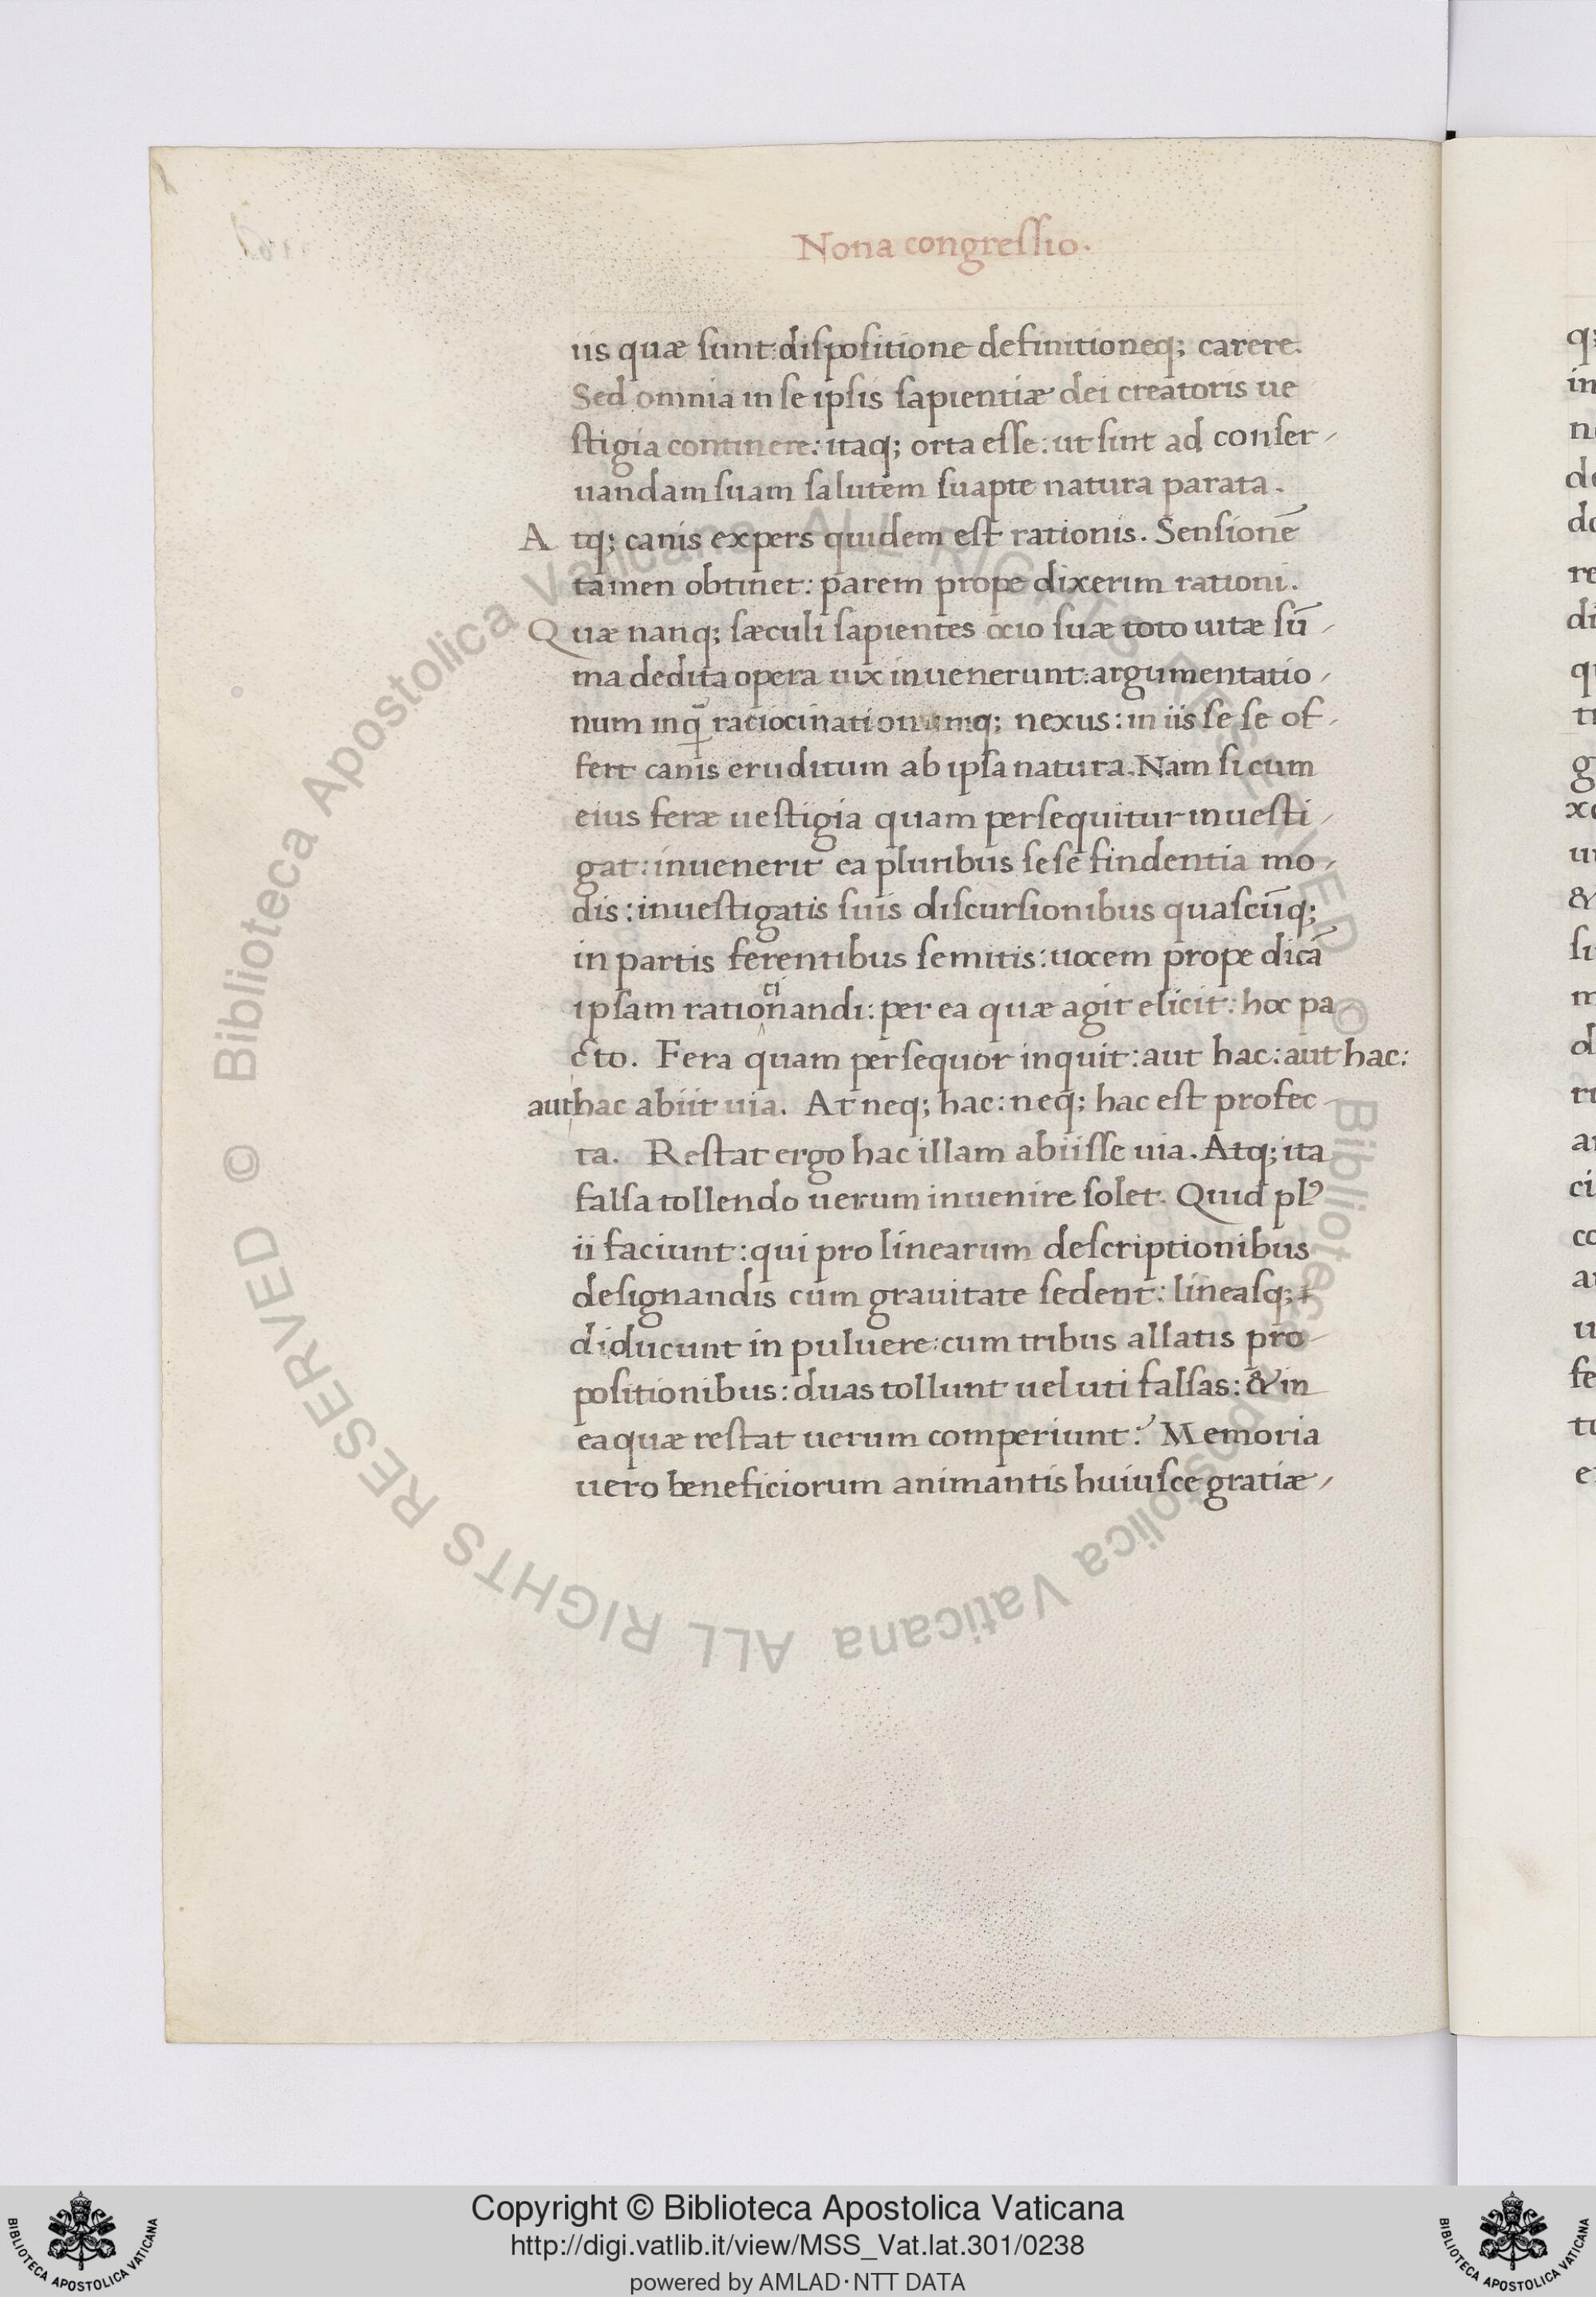 Nona congreſſio.
iis quæ ſunt:diſpoſitione definitioneq; carere.
Sed omnia in ſe ipſis ſapientiæ dei creatoris ue
ſtigia continere: itaq; orta eſſe: ut ſint ad conſer-
uandam ſuam ſalutem ſuapte natura parata.
A tq; canis expers quidem eſt rationis. Senſionē
tamen obtinet: parem prope dixerim rationi.
Q uæ nanq; ſæculi ſapientes ocio ſuæ toto uitæ ſū-
ma dedita opera uix inuenerunt:argumentatio-
num inq̄ ratiocinationumq; nexus: in iis ſe ſe of-
fert canis eruditum ab ipſa natura. Nam ſi cum
eius feræ ueſtigia quam perſequitur inueſti-
gat: inuenerit ea pluribus ſeſe findentia mo-
dis: inueſtigatis ſuis diſcurſionibus quaſcūq;
in partis ferentibus ſemitis: uocem prope dicā
ipſam ratiocinandi: per ea quæ agit elicit: hoc pa
cto. Fera quam perſequor inquit: aut hac: aut hac:
aut hac abiit uia. At neq; hac: neq; hac eſt profec-
ta. Reſtat ergo hac illam abiiſſe uia. Atq; ita
falſa tollendo uerum inuenire ſolet. Quid plꝰ
ii faciunt: qui pro linearum deſcriptionibus
deſignandis cum grauitate ſedent: lineaſq;
diducunt in puluere: cum tribus allatis pro-
poſitionibus: duas tollunt ueluti falſas: & in
ea quæ reſtat uerum comperiunt? Memoria
uero beneficiorum animantis huiuſce gratiæ-
q;
in
re
g
&
Copyright © Biblioteca Apostolica Vaticana
http://digi.vatlib.it/view/MSS_Vat.lat.301/0238
powered by AMLAD·NTT DATA
BIBLIOTECA APOSTOLICA VATICANA
BIBLIOTECA APOSTOLICA VATICANA
© Biblioteca Apostolica Vaticana ALL RIGHTS RESERVED
© Biblioteca Apostolica Vaticana ALL RIGHTS RESERVED